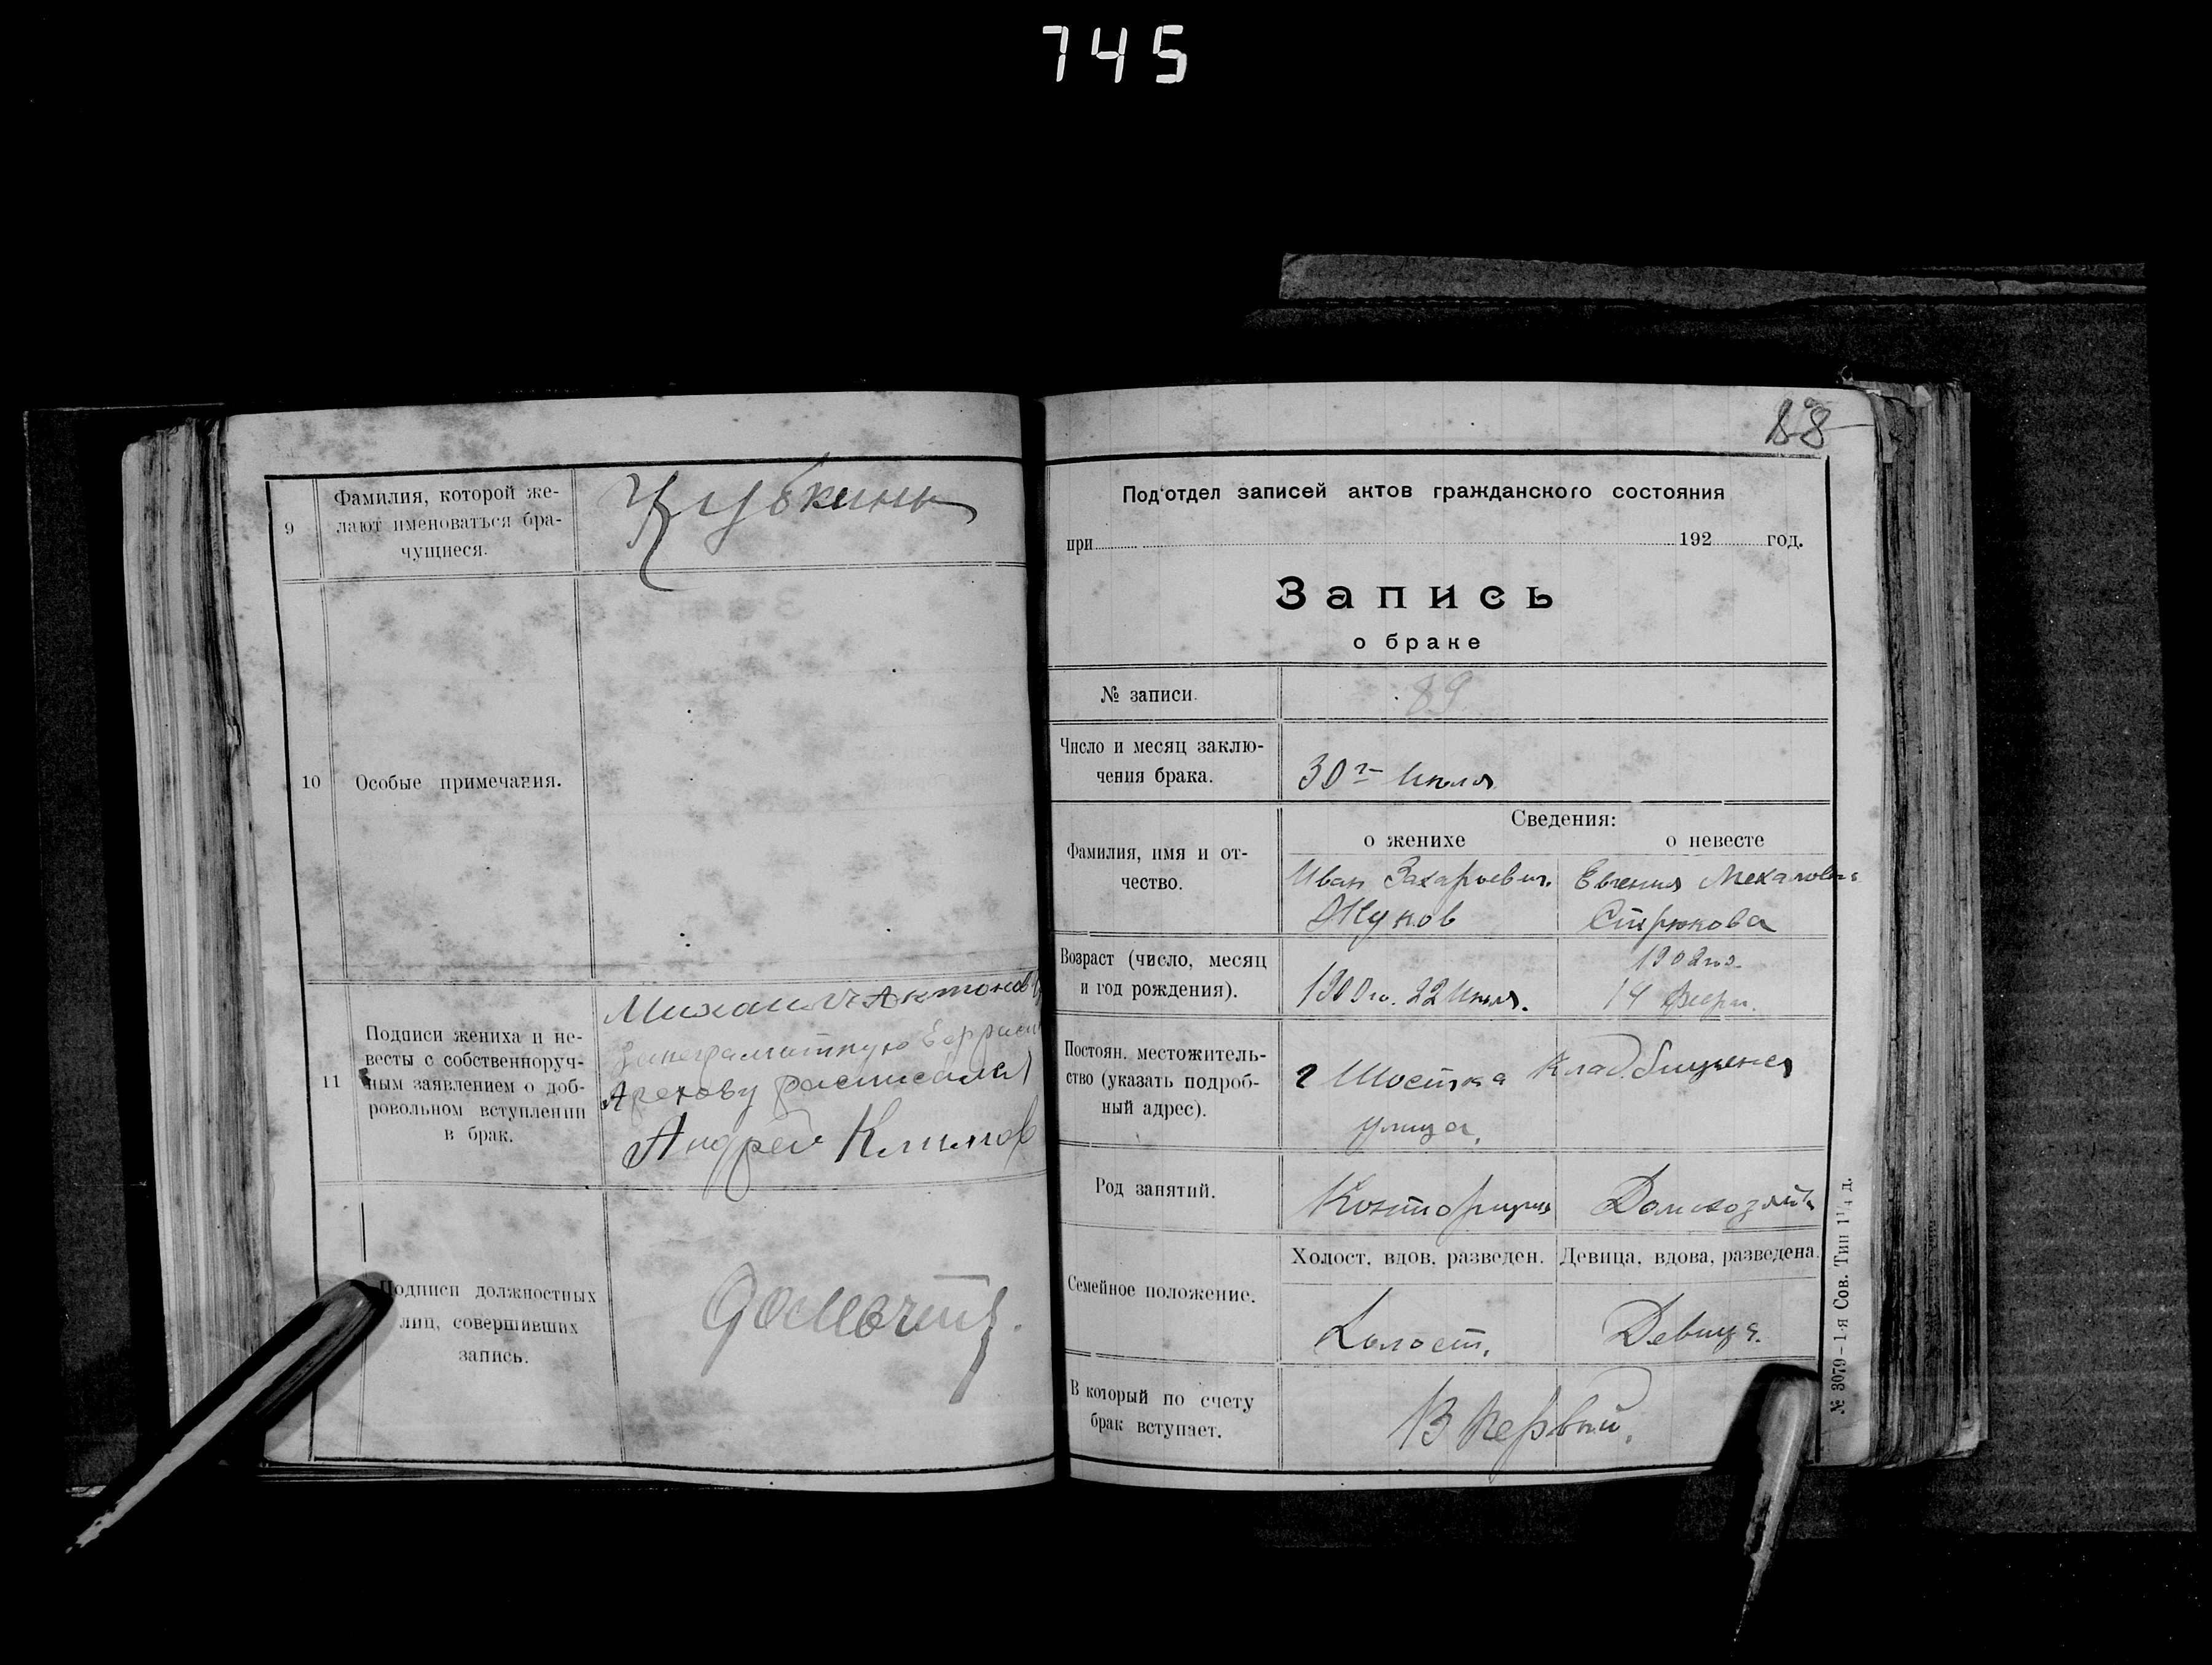 745
9
Фамилия, которой же-
лают именоваться бра-
чущиеся.
10
Особые примечания.
11
Подписи жениха и не-
весты с собственноруч-
ным заявлением о доб-
ровольном вступлении
в брак.
Михаил
расписался
Андрей Климов
Подписи должностных
лиц, совершивших
запись.
88
Под'отдел записей актов гражданского состояния
при 192 год.
Запись
о браке
№ записи.
89
Число и месяц заклю-
чения брака.
30го Июля
Сведения:
о женихе
о невесте
Фамилия, имя и от-
чество.
Иван Захарьевич
Жуков
Евгения
Стрюкова
Возраст (число, месяц
и год рождения).
1900 го. 22 Июля.
1902 го
14 Февр.
Постоян. местожитель-
ство (указать подроб-
ный адрес).
г Шостка
улица.
Род занятий.
Конторщик
Домохозяйк
Семейное положение.
Холост, вдов, разведен.
Девица, вдова, разведена.
Холост.
Девица.
В который по счету
брак вступает.
В первый.
№ 3079 – 1-я Сов. Тип 1¹/₄ д.